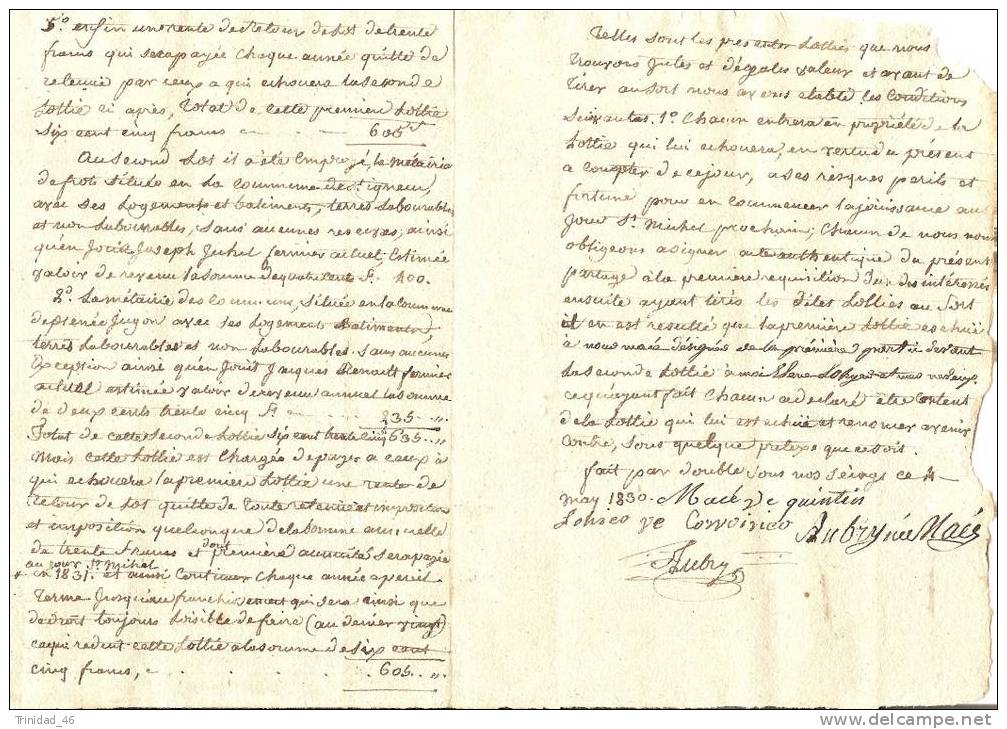 5.o enfin une rente de Retour de Lot de trente
francs qui sera payée chaque année quitte de
retenüe par ceux a qui echouera la seconde
Lottie ci après, Total de cette premiere Lottie
Six cent cinq francs 605 ff
Au second Lot il a été Employé, la métairie
située en la commune de
avec ses Logements et batiments, terres Labourables
et non Labourables, sans aucunes reserves, ainsi
qu'en Jouit Joseph Juhel fermier actuel; Estimée
valoir de revenu la somme de quatre cent F. 400.
2.o La métairie des Communs, Située en la Commune
de Plenée Jugon avec ses Logements Batiments,
terres Labourables et non Labourables. Sans aucune
Exception ainsi qu'en Jouit Jacques Renault fermier
actuel estimée valoir de revenu annuel la somme
de deux cents trente cinq F 235 .. "
Total de cette seconde Lottie six cent trente cinq 635 .. "
Mais cette Lottie est Chargée de payer a ceux à
qui echouera la premiere Lottie une rente de
Retour de Lot quitte de toute retenüe et imposition
et imposition quelconque de la somme annuelle
de trente francs dont premiere annuité sera payée
au jour St. Michel
en 1831. et ainsi Continuer Chaque année a pareil
Terme Jusqu'au franchissement qui sera ainsi que
de droit toujours Loisible de faire (au denier vingt)
ce qui reduit cette Lottie a la somme de six cent
cinq francs, 605 .. "
Telles sont les presentes Lotties que nous
trouvons Justes et d'égales valeur et avant de
Tirer au sort nous avons etabli les Conditions
Suivantes. 1.o Chacun entrera en propriété de la
Lottie qui lui echouera, en vertu du présent
a compter de ce jour, a ses risques perils et
fortune pour en commencer la jouissance au
jour St. Michel prochain; Chacun de nous nous
obligeons a signer acte authentique du présent
partage à la premiere requisition d'un des intéressés
ensuite ayant tirés les dites Lotties au Sort
il en est resulté que la premiere Lottie est echüe
à nous macé désignée de la premiere part ci devant
La seconde Lottie à moi et mes neveux.
ce qu'ayant fait Chacun a declaré être Content
de la Lottie qui lui est echüe et renoncer avenir
Contre, sous quelque pretexte que ce soit.
fait par double sous nos seings ce 4
may 1830. Macé Ve quintin
Ve Aubry née Macé
Aubry
Trinidad_46
www.delcampe.net